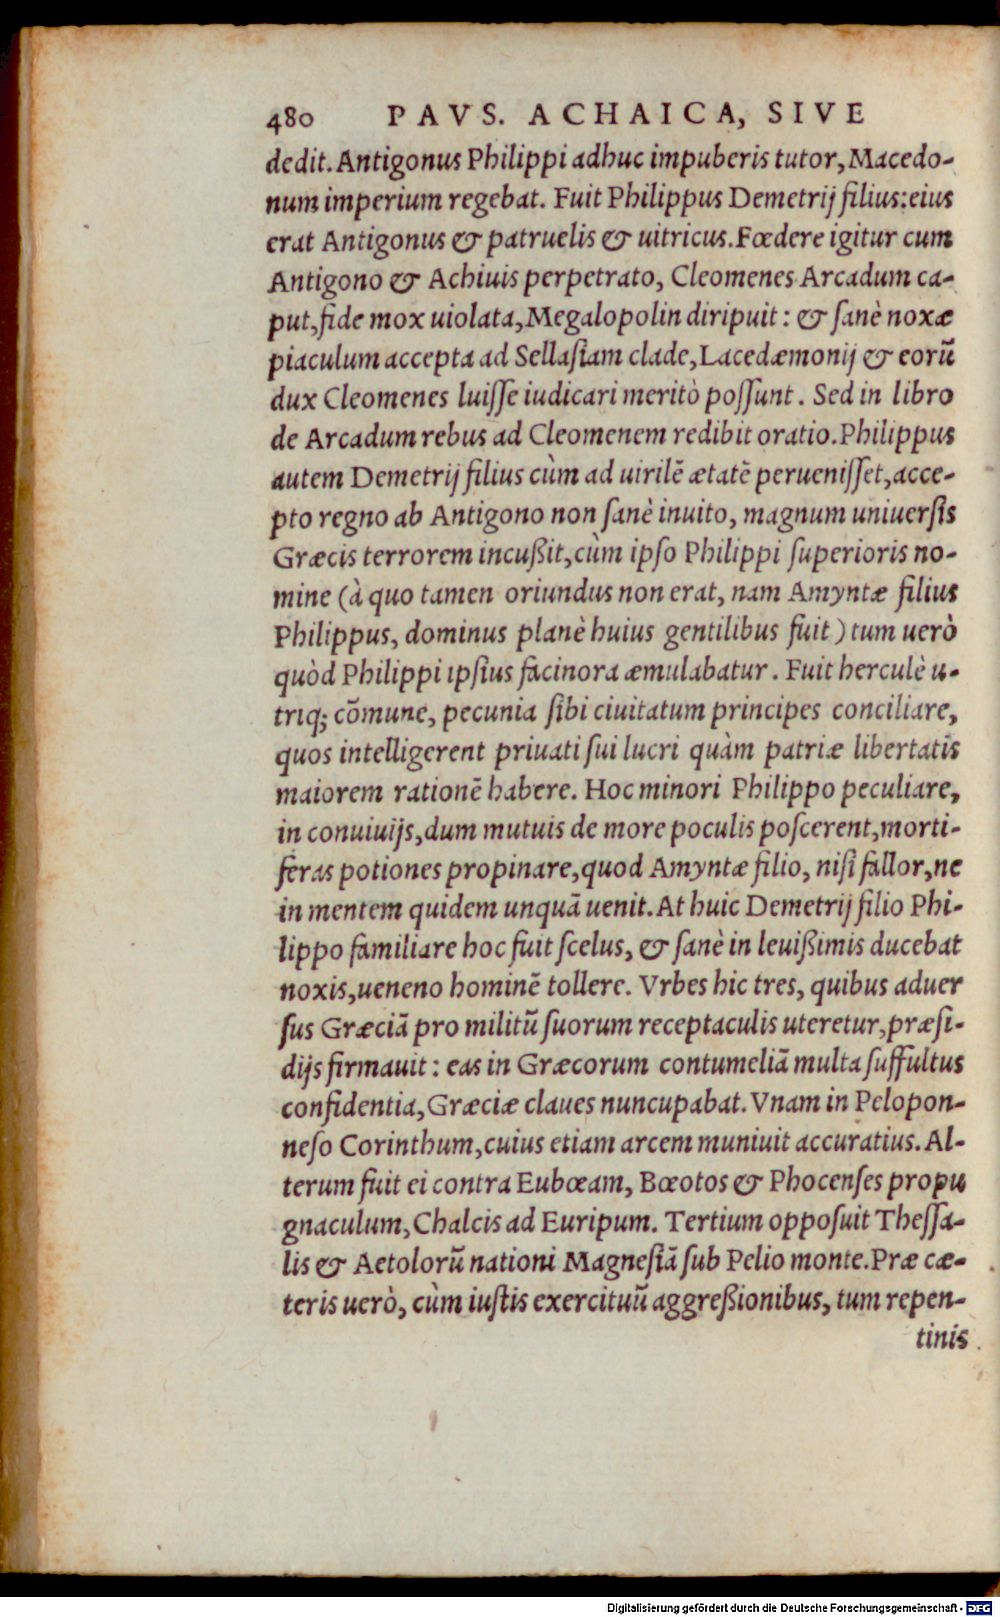 480 PAVS. ACHAICA, SIVE
dedit. Antigonus Philippi adhuc impuberis tutor, Macedo-
num imperium regebat. Fuit Philippus Demetrij filius: eius
erat Antigonus & patruelis & uitricus. Fœdere igitur cum
Antigono & Achiuis perpetrato, Cleomenes Arcadum ca-
put, fide mox uiolata, Megalopolin diripuit: & sanè noxæ
piaculum accepta ad Sellasiam clade, Lacedæmonij & eorũ
dux Cleomenes luisse iudicari meritò possunt. Sed in libro
de Arcadum rebus ad Cleomenem redibit oratio. Philippus
autem Demetrij filius cùm ad uirilẽ ætatẽ peruenisset, acce-
pto regno ab Antigono non sanè inuito, magnum uniuersis
Græcis terrorem incußit, cùm ipso Philippi superioris no-
mine (à quo tamen oriundus non erat, nam Amyntæ filius
Philippus, dominus planè huius gentilibus fuit) tum uerò
quòd Philippi ipsius facinora æmulabatur. Fuit herculè u-
triq; cõmune, pecunia sibi ciuitatum principes conciliare,
quos intelligerent priuati sui lucri quàm patriæ libertatis
maiorem rationẽ habere. Hoc minori Philippo peculiare,
in conuiuijs, dum mutuis de more poculis poscerent, morti-
feras potiones propinare, quod Amyntæ filio, nisi fallor, ne
in mentem quidem unquã uenit. At huic Demetrij filio Phi-
lippo familiare hoc fuit scelus, & sanè in leuißimis ducebat
noxis, ueneno hominẽ tollere. Vrbes hic tres, quibus aduer
sus Græciã pro militũ suorum receptaculis uteretur, præsi-
dijs firmauit: eas in Græcorum contumeliã multa suffultus
confidentia, Græciæ claues nuncupabat. Vnam in Pelopon-
neso Corinthum, cuius etiam arcem muniuit accuratius. Al-
terum fuit ei contra Eubœam, Bœotos & Phocenses propu
gnaculum, Chalcis ad Euripum. Tertium opposuit Thessa-
lis & Aetolorũ nationi Magnesiã sub Pelio monte. Præ cæ-
teris uerò, cùm iustis exercituũ aggreßionibus, tum repen-
tinis
Digitalisierung gefördert durch die Deutsche Forschungsgemeinschaft - DFG